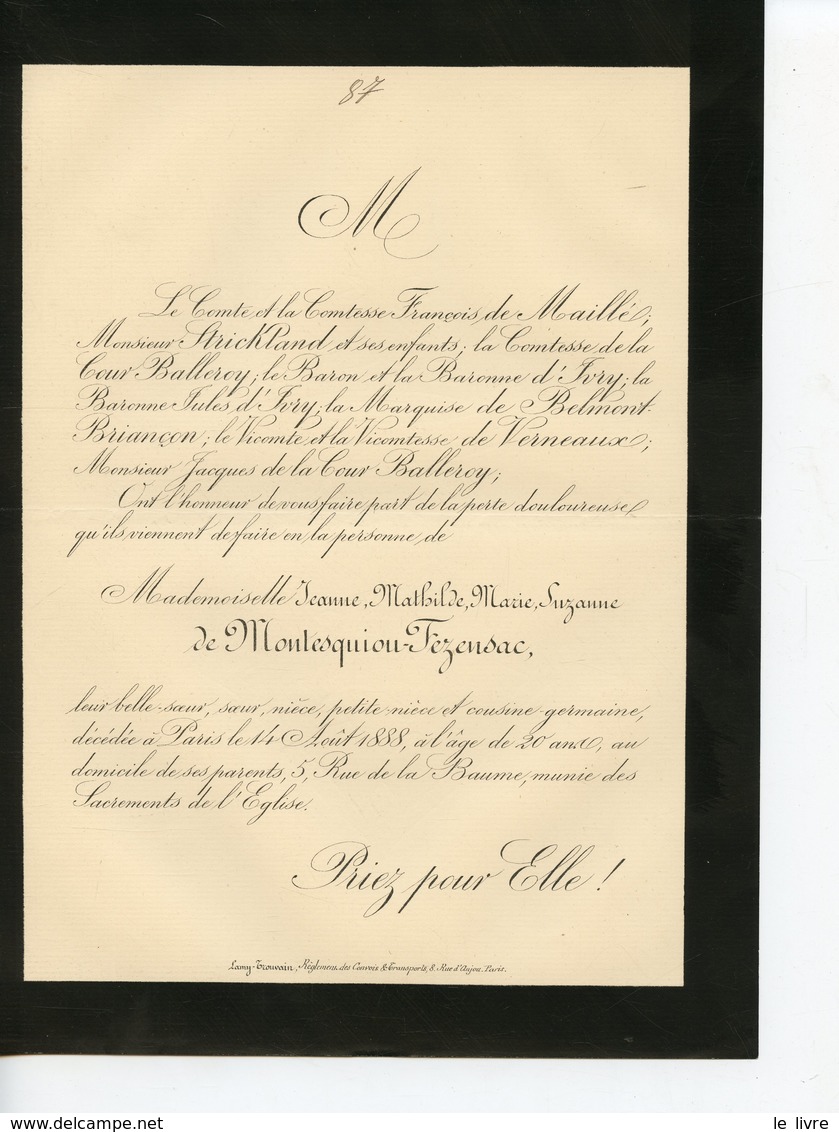 87
M
Le Comte et la Comtesse François de Maillé;
Monsieur Strickland et ses enfants; la Comtesse de la
Cour Balleroy; le Baron et la Baronne d'Ivry; la
Baronne Jules d'Ivry; la Marquise de Belmont-
Briançon; le Vicomte et la Vicomtesse de Verneaux;
Monsieur Jacques de la Cour Balleroy;
Ont l'honneur de vous faire part de la perte douloureuse
qu'ils viennent de faire en la personne de
Mademoiselle Jeanne, Mathilde, Marie, Suzanne
de Montesquiou-Fezensac,
leur belle-sœur, sœur, nièce, petite-nièce et cousine-germaine,
décédée à Paris le 14 Août 1888, à l'âge de 20 ans, au
domicile de ses parents, 5, Rue de la Baume, munie des
Sacrements de l'Eglise.
Priez pour Elle!
Lamy-Trouvain, Règlement des Convois & Transports, 8, Rue d'Anjou. Paris.
le livre